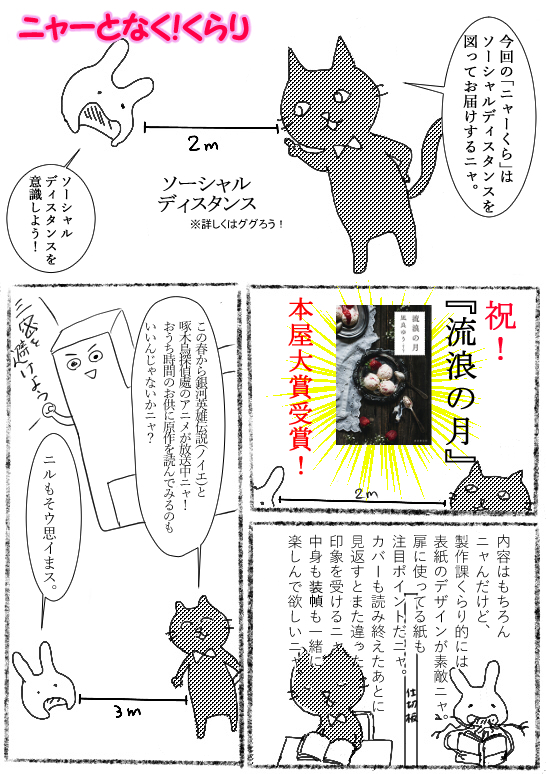 ニャーとなく!くらり
今回の「ニャーくら」は
ソーシャルディスタンスを
図ってお届けするニャ。
2m
ソーシャル
ディスタンス
※詳しくはググろう！
ソーシャル
ディスタンスを
意識しよう！
祝！
『流浪の月』
本屋大賞受賞！
流浪の月
凪良ゆう
2m
内容はもちろん
ニャんだけど、
製作課くらり的には
表紙のデザインが素敵ニャ。
扉に使ってる紙も
注目ポイントだニャ。
カバーも読み終えたあとに
見返すとまた違った
印象を受けるニャ
中身も装幀も一緒に
楽しんで欲しいニャ
仕切板
この春から銀河英雄伝説（ノイエ）と
啄木鳥探偵處のアニメが放送中ニャ！
おうち時間のお供に原作を読んでみるのも
いいんじゃないかニャ？
三密を避けよう
ニルもそウ思イまス。
3m